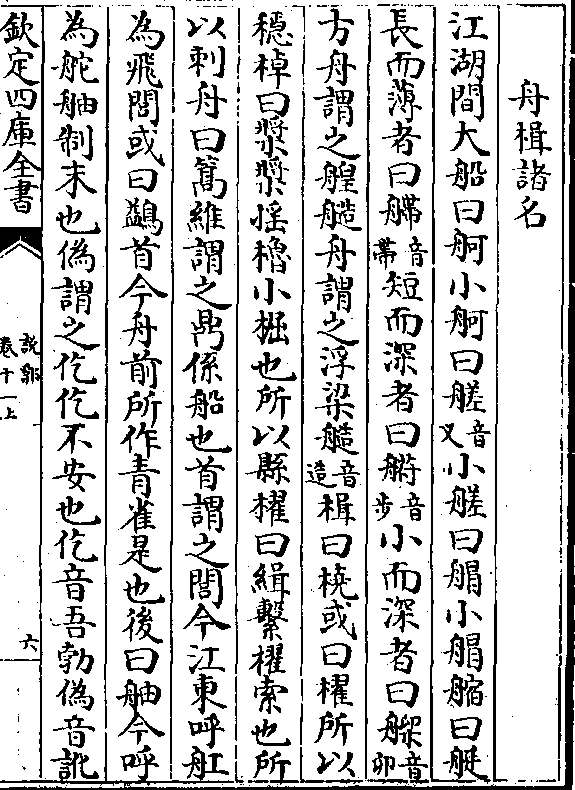 舟楫諸名
江湖間大船曰舸小舸曰艖音叉小艖曰艒小艒䑿曰艇
長而薄者曰艜音帶短而深者曰䑰音步小而深者曰𦩍音卭
方舟謂之艎艁舟謂之浮梁艁音造楫曰橈或曰櫂所以
穩棹曰槳槳揺櫓小橛也所以縣櫂曰緝繫櫂索也所
以刺舟曰篙維謂之鼎係船也首謂之閤今江東呼舡
為飛閭或曰鷁首今舟前所作青雀是也後曰舳今呼
為舵舳制末也偽謂之仡仡不安也仡音吾勃偽音訛
欽定四庫全書
說郛
卷十一上
六